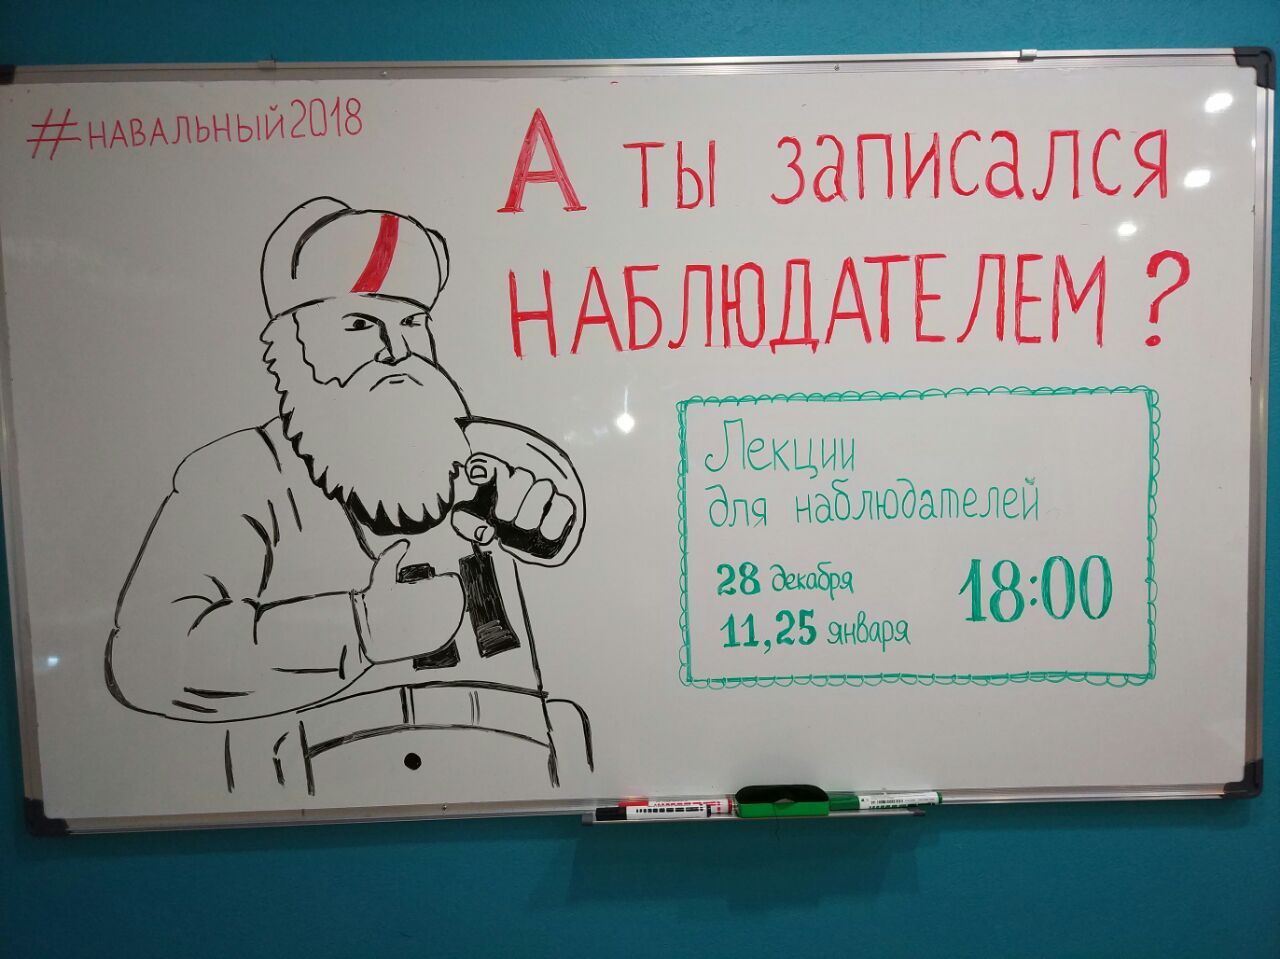 #НАВАЛЬНЫЙ2018
А ТЫ ЗАПИСАЛСЯ
НАБЛЮДАТЕЛЕМ?
Лекции
для наблюдателей
28 декабря
11,25 января
18:00